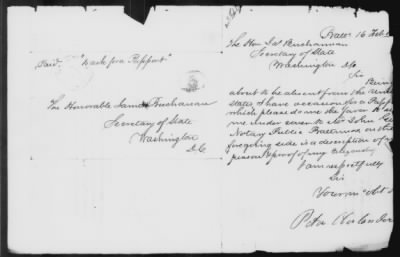 Paid. "Wants for a Passport"
The Honorable James Buchanan
Secretary of State
Washington
D.C.
Balto 16 Feb
The Hon Jas Buchannan
Secretary of State
Washington D.C.
Sir
Being
about to be absent from the United
States I have occasion for a Passp
which please do me the favor to
me under cover to Mr John
Notary Public Baltimore on the
foregoing side is a description of
person & proof of my Citizenship
I am respectfully
Sir
Your m obt
Peter